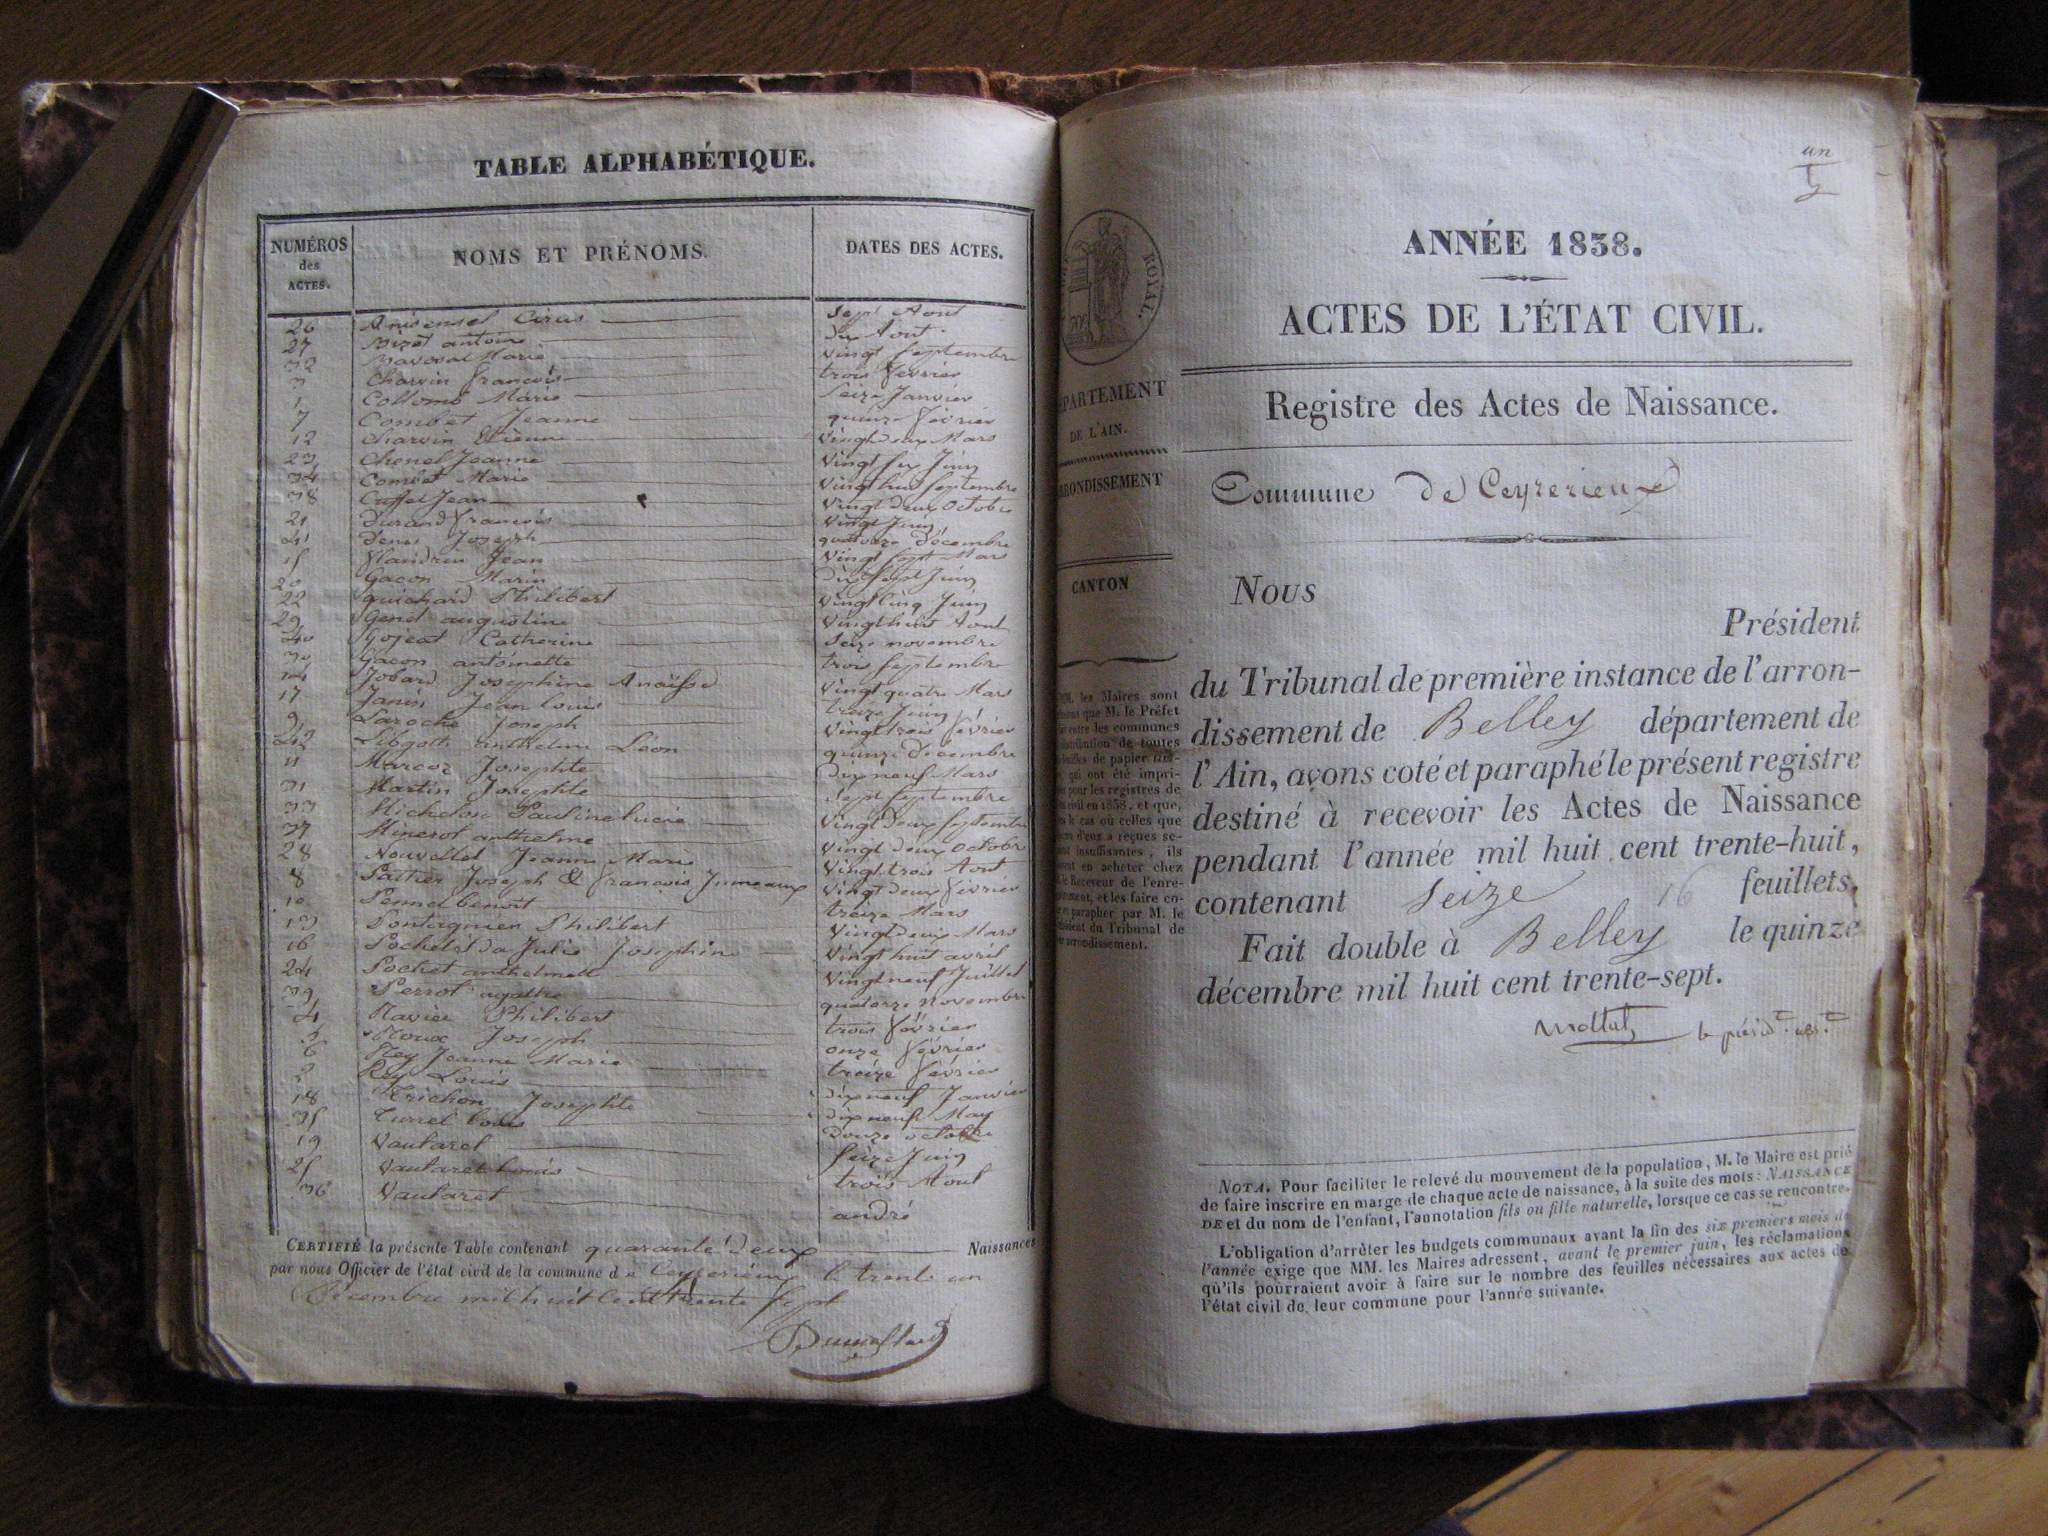 TABLE ALPHABÉTIQUE.
NUMÉROS des ACTES.
NOMS ET PRÉNOMS.
DATES DES ACTES.
26 Cirus sept Aout
27 Bizet antoine dix Aout
32 Marie vingt septembre
3 Charvin françois trois février
1 Collomb Marie seize Janvier
7 Combet Jeanne quinze février
12 Charvin Etienne vingt deux Mars
23 Chenel Jeanne vingt six Juin
34 Combet Marie vingt huit septembre
38 Cuffet Jean vingt deux Octobre
21 Durand françois vingt Juin
41 Denis Joseph quatorze décembre
15 flandrin Jean vingt sept Mars
20 Gacon Marin dix sept Juin
22 guichard Philibert vingt cinq Juin
29 augustine vingt huit Aout
40 Gojeat Catherine seize novembre
30 Gacon antoinette trois septembre
14 Jobard Josephine vingt quatre Mars
17 Janin Jean Louis treize Juin
9 Laroche Joseph vingt trois février
42 anthelme Léon quinze décembre
11 Marcoz Josephte dix neuf Mars
31 Martin Josephte sept septembre
33 Michelon Pauline lucie vingt deux septembre
37 Minerot anthelme vingt deux octobre
28 Nouvellet Jeanne Marie vingt trois Aout
8 Joseph & françois Jumeaux vingt deux février
10 benoit treize Mars
13 Philibert vingt deux Mars
16 Pochet Julie Josephine vingt huit avril
24 Pochet vingt neuf Juillet
39 Perrot agathe quatorze novembre
4 Ravier Philibert trois février
5 Roux Joseph onze février
6 Rey Jeanne Marie treize février
2 Rey Louis dix neuf Janvier
18 Trichon Josephte dix neuf May
35 Turrel Louis douze octobre
19 Vautaret seize Juin
25 Vautaret Louis trois Aout
36 Vautaret andré
CERTIFIÉ la présente Table contenant quarante deux Naissances
par nous Officier de l'état civil de la commune de Ceyzerieux le trente un
Décembre mil huit cent trente sept
un
ROYAL.
DÉPARTEMENT
DE L'AIN.
ARRONDISSEMENT
CANTON
MM. les Maires sont
que M. le Préfet
entre les communes
distribution de toutes
feuilles de papier
qui ont été impri-
pour les registres de
civil en 1838, et que,
le cas où celles que
d'eux a reçues se-
insuffisantes, ils
en acheter chez
le Receveur de l'enre-
et les faire co-
parapher par M. le
Président du Tribunal de
arrondissement.
ANNÉE 1838.
ACTES DE L'ÉTAT CIVIL.
Registre des Actes de Naissance.
Commune de Ceyzerieux
Nous
Président
du Tribunal de première instance de l'arron-
dissement de Belley département de
l'Ain, avons coté et paraphé le présent registre
destiné à recevoir les Actes de Naissance
pendant l'année mil huit cent trente-huit,
contenant seize 16 feuillets.
Fait double à Belley le quinze
décembre mil huit cent trente-sept.
NOTA. Pour faciliter le relevé du mouvement de la population, M. le Maire est prié
de faire inscrire en marge de chaque acte de naissance, à la suite des mots: NAISSANCE
DE et du nom de l'enfant, l'annotation fils ou fille naturelle, lorsque ce cas se rencontre.
L'obligation d'arrêter les budgets communaux avant la fin des six premiers mois de
l'année exige que MM. les Maires adressent, avant le premier juin, les réclamations
qu'ils pourraient avoir à faire sur le nombre des feuilles nécessaires aux actes de
l'état civil de leur commune pour l'année suivante.